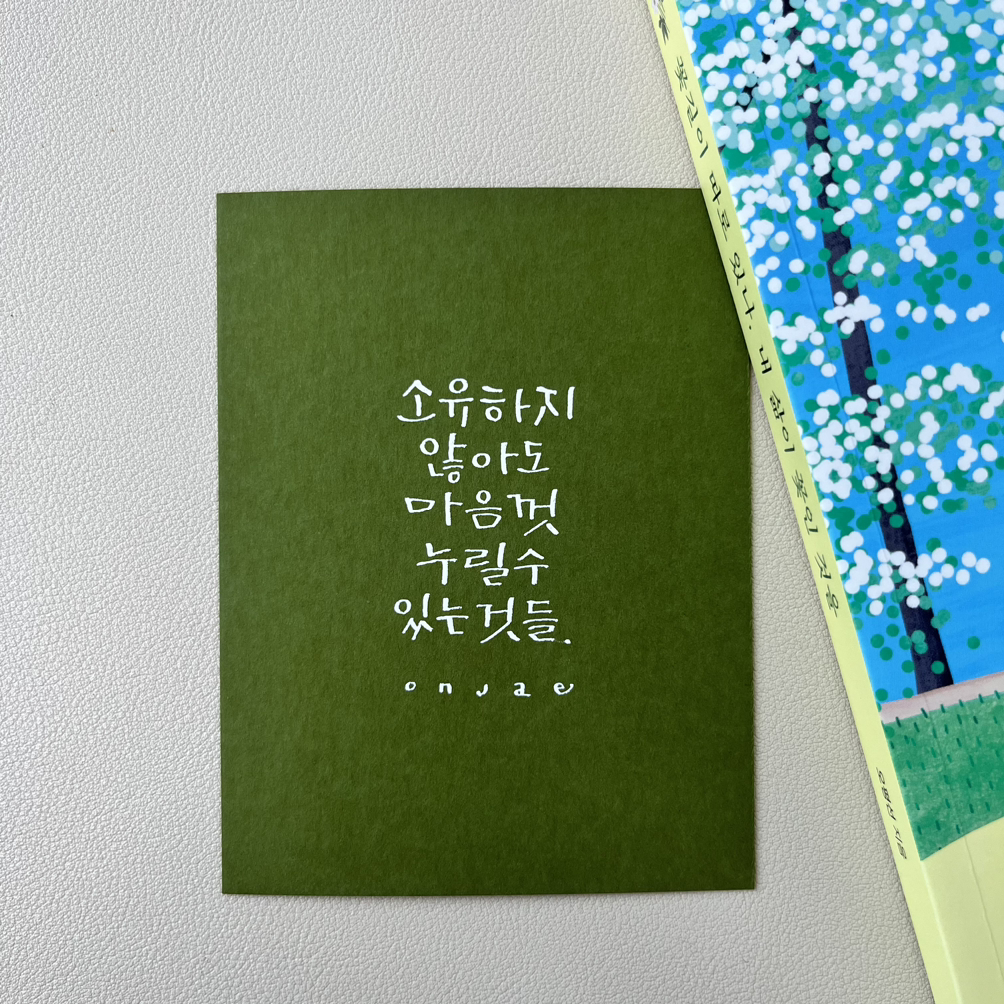 소유하지
않아도
마음껏
누릴수
있는것들.
onjae
꽃길이 따로 있나, 내 삶이 꽃인 것을
오평선 지음